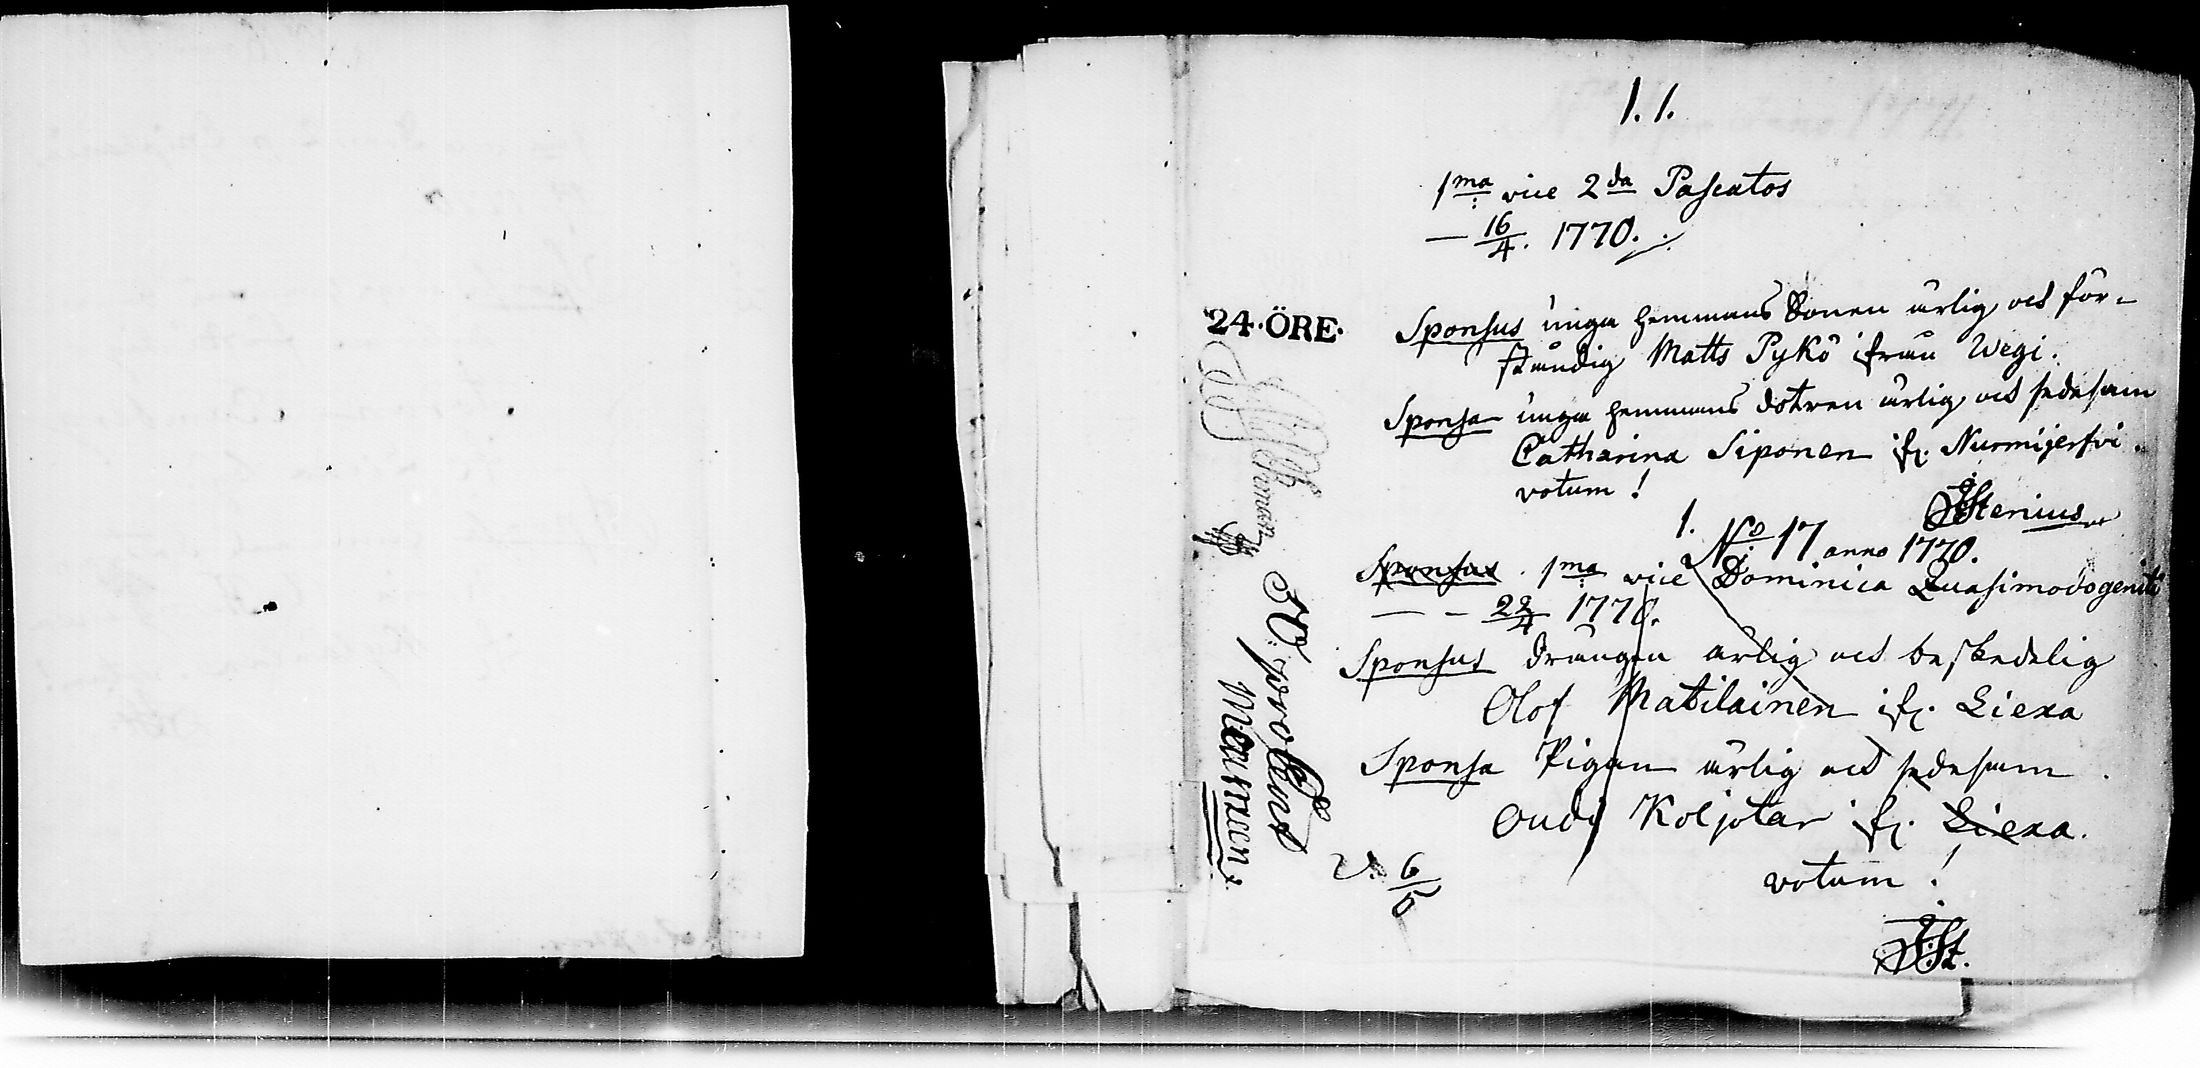 1. 1.
1ma vice 2da Pascatos
— 16/4. 1770.
24·ÖRE·
Sponsus unga hemmans Sonen ärlig och för-
ståndig Matts Pykö ifrån Wegi.
Sponsa unga hemmans dotren ärlig och sedesam
Catharina Siponen ifr. Nurmijerfvi.
votum!
JStenius
1.
No: 17 anno 1770.
Sponsus. 1ma vice Dominica Quasimodogeniti
— — 22/4 1770.
Sponsus drängen ärlig och beskedelig
Olof Matilainen ifr. Liexa
Sponsa Pigan ärlig och sedesam
Koljotar ifr. Liexa.
votum!
J:St.
V. 6/5